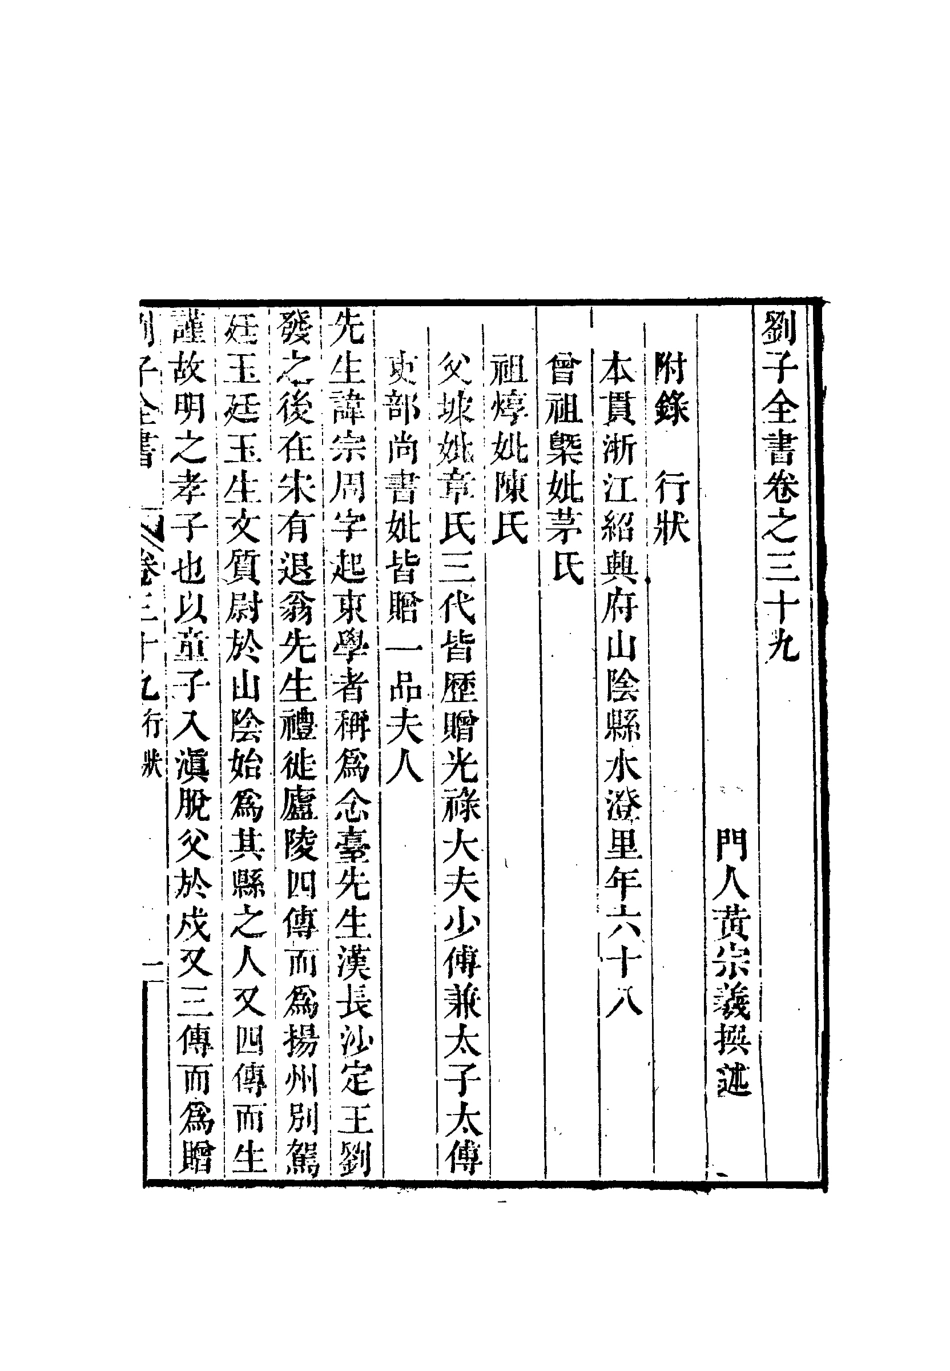 劉子全書卷之三十九
門人黃宗羲撰述
附錄　行狀
本貫浙江紹興府山陰縣水澄里年六十八
曾祖槩妣茅氏
祖焞妣陳氏
父坡妣章氏三代皆歷贈光祿大夫少傅兼太子太傅
吏部尚書妣皆贈一品夫人
先生諱宗周字起東學者稱爲念臺先生漢長沙定王劉
發之後在宋有退翁先生禮徙廬陵四傳而爲揚州別駕
廷玉廷玉生文質尉於山陰始爲其縣之人又四傳而生
謹故明之孝子也以童子入滇脫父於戍又三傳而爲贈
劉子全書　卷三十九行狀　一